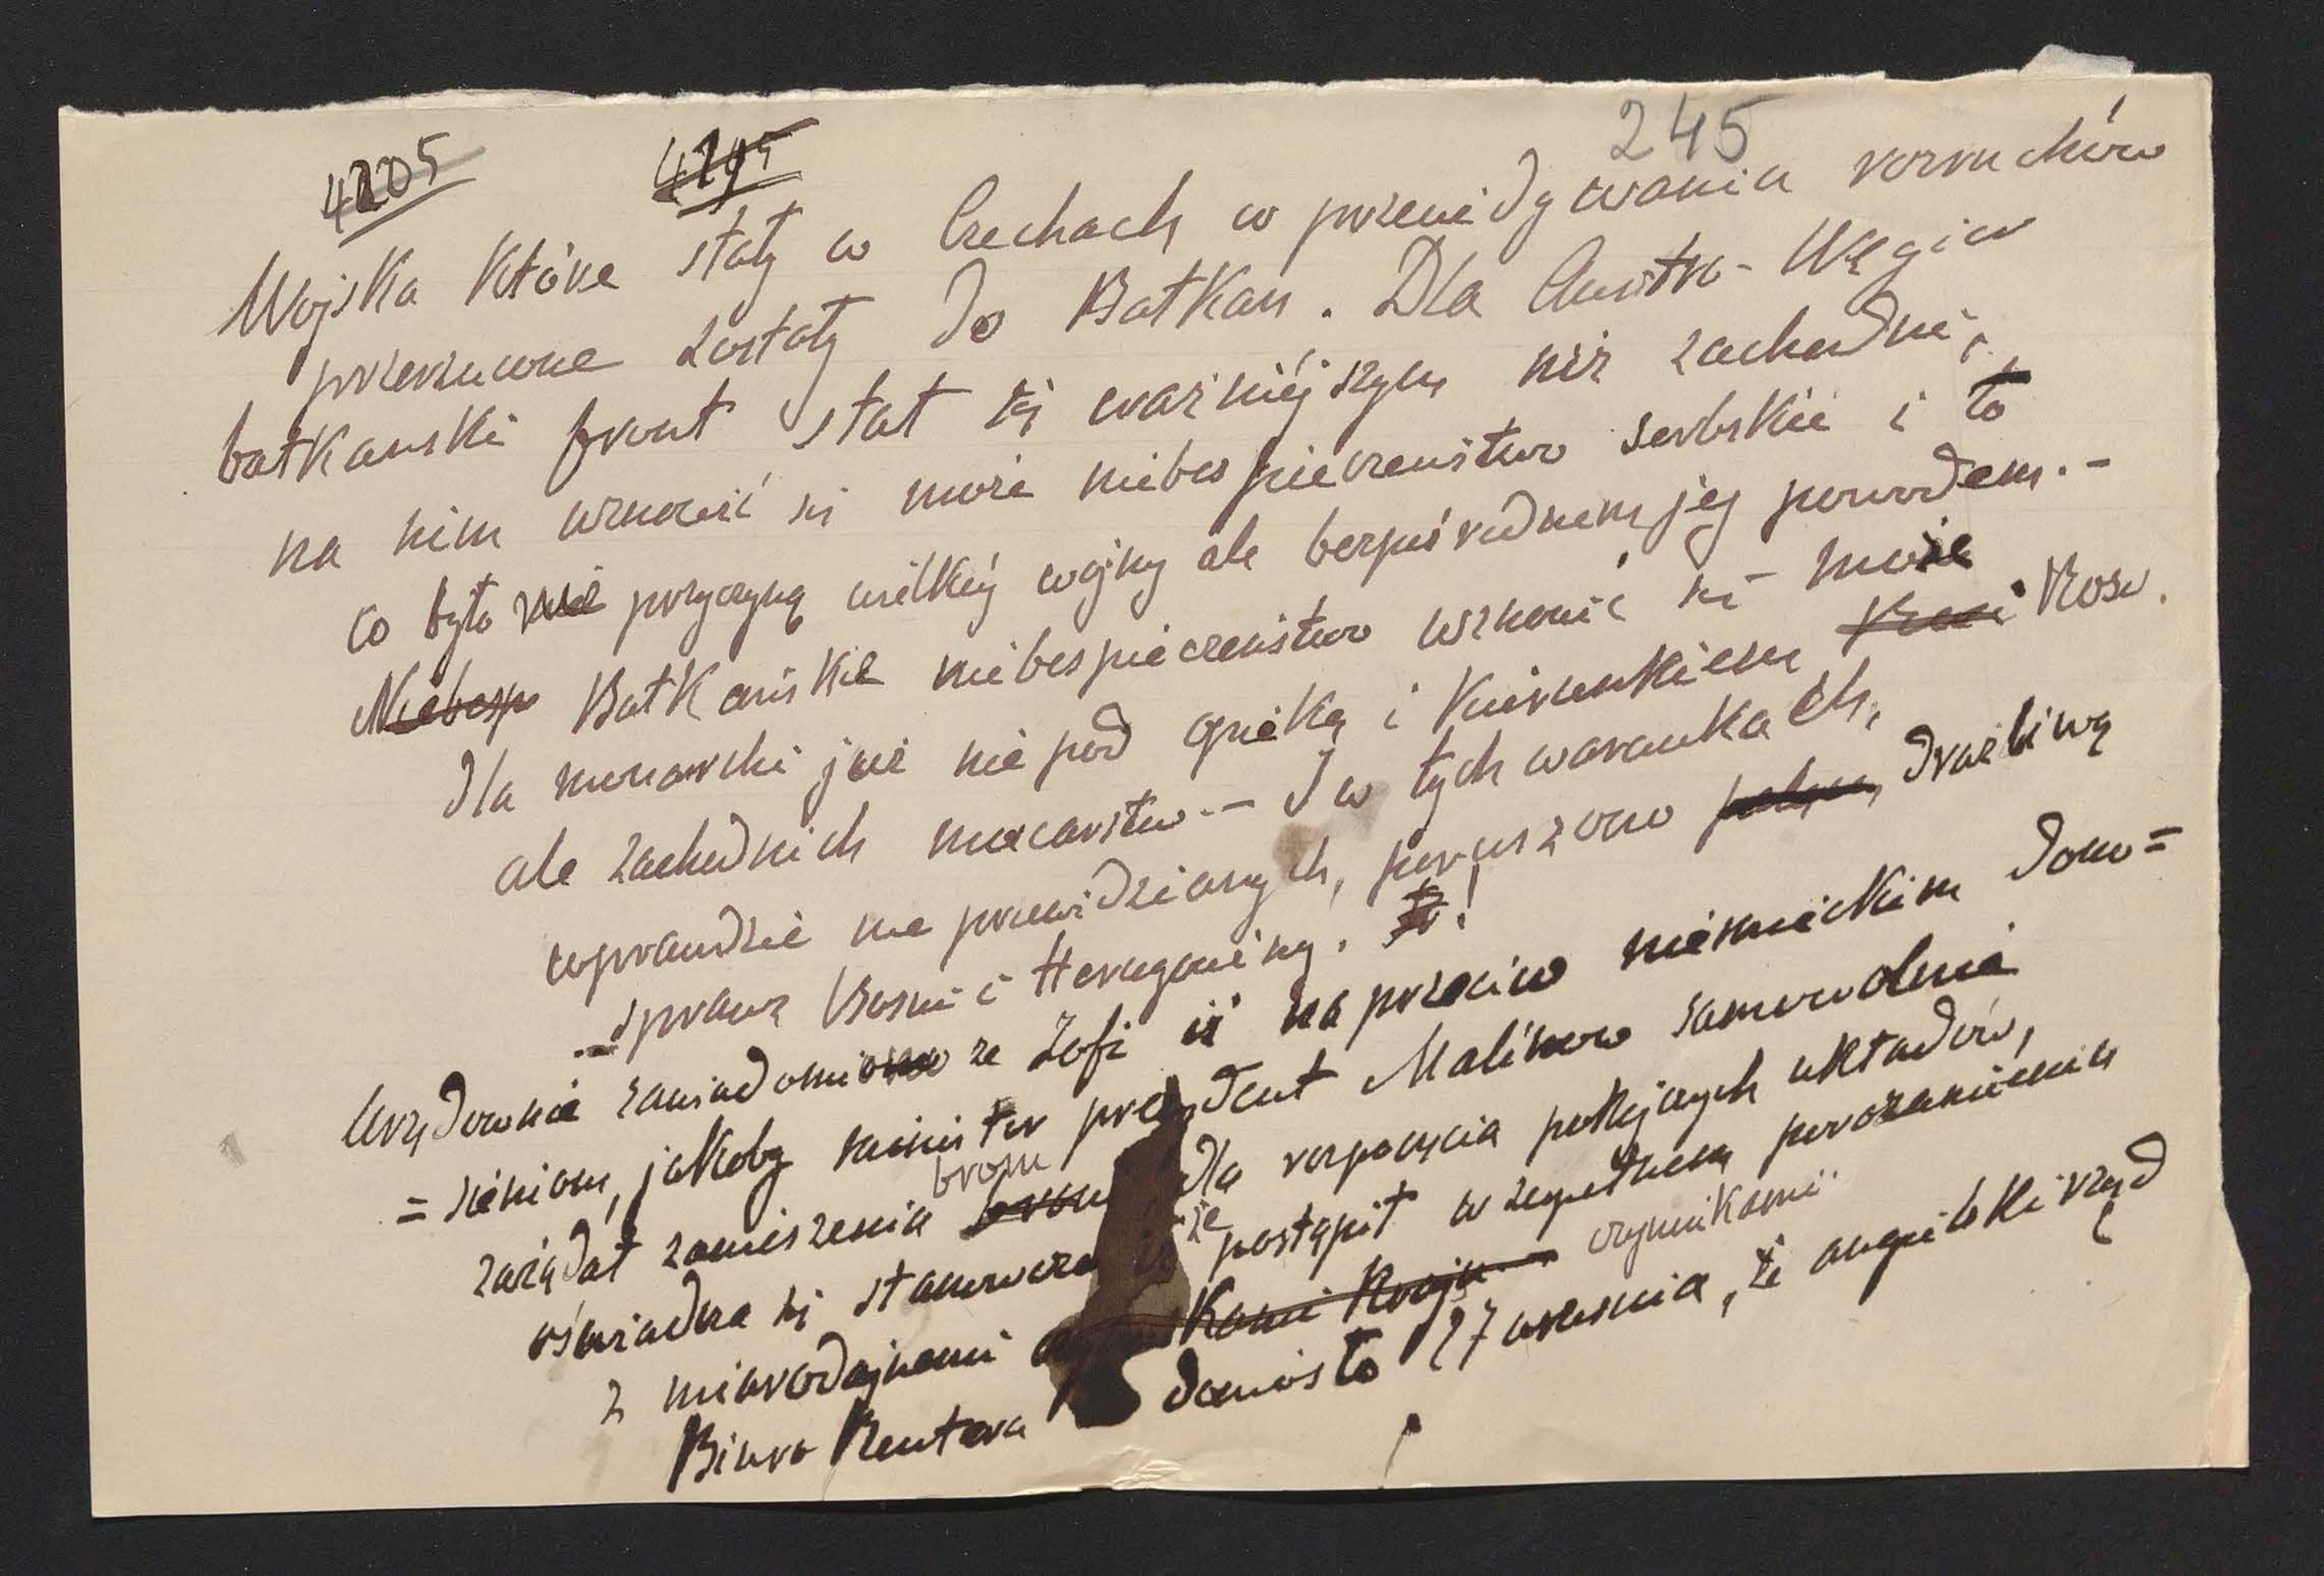 4205 4195 245
Wojska które stały w Czechach w przewidywaniu rozruchów
przerzucone zostały do Bałkan. Dla Austro-Węgier
bałkański front stał się ważniejszym niż zachodni;
na nim wznowić się może niebespieczeństwo serbskie i to
co było nie przyczyną wielkiej wojny ale bezpośrednem jej powodem.-
Niebesp Bałkańskie niebespieczeństwo wznowić się może
dla monarchi już nie pod opieką i kierunkiem Rosi
ale zachodnich mocarstw.- I w tych warunkach,
wprawdzie nie przewidzianych, poruszono drażliwą
sprawę Bosni i Hercegowiny.!
Urzędownie zawiadomiono ze Zofi iż na przeciw niemieckim donie=
=sieniom, jakoby minister prezydent Malinow samowolnie
zażądał zawieszenia broni dla rozpoczęcia pokojowych układów,
oświadcza się stanowczo że postąpił w zupełnem porozumieniu
z miarodajnemi kami kraju czynnikami
Biuro Reutera doniosło 27 września, że angielski rząd